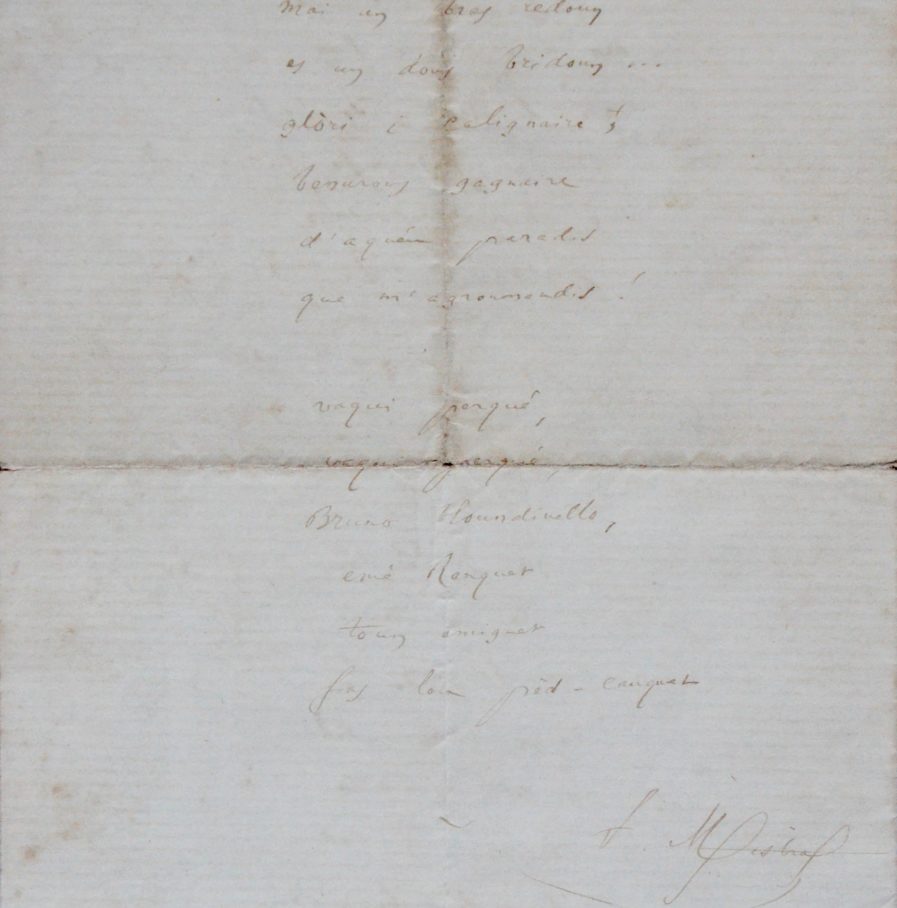 Mai un bras redoun
es un dous bridoun ...
glòri i calignaire !
benurous gagnaire
d'aquéu paradis
que m'agroumandis !
vaqui perqué,
vaqui perqué,
Bruno Bloundinello,
emé Ranquet
toun amiguet
fas lou pèd-cauquet
F. Mistral